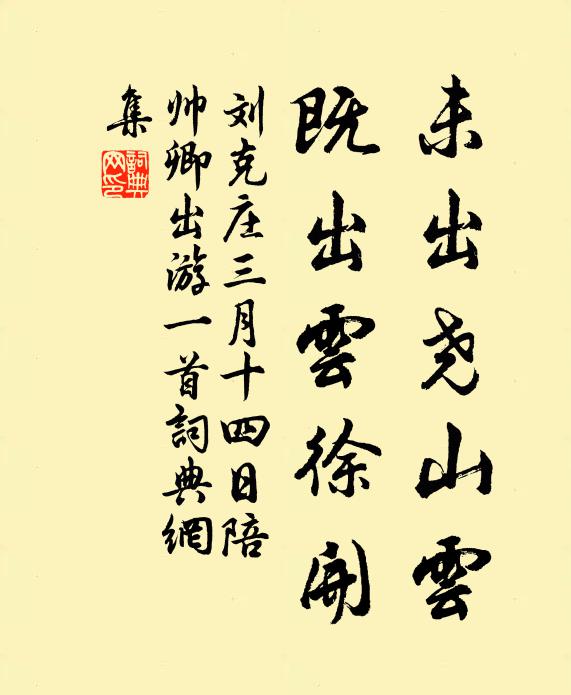 未出尧山雲
既出雲徐開
刘克庄三月十四日陪
帅卿出游一首詞典網
集
詞典
网印